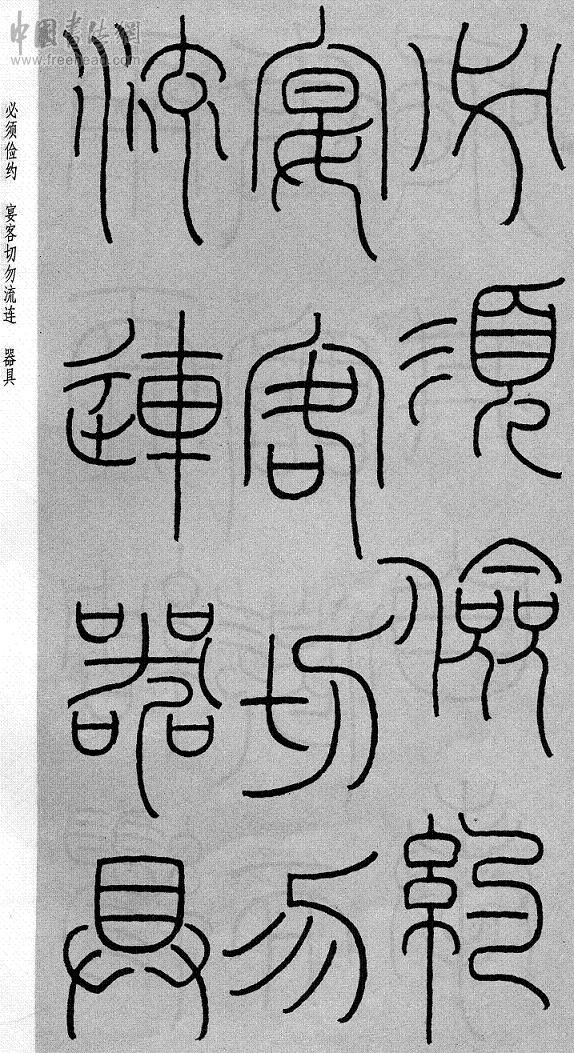 必須儉約
宴客切勿
流連器具
必须俭约 宴客切勿流连 器具
中国书法网
www.freehead.com